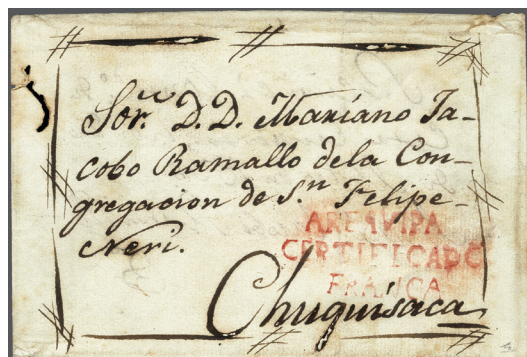 Sor.n D. D. Mariano Ja-
cobo Ramallo dela Con-
gregacion de S.n Felipe
Neri.
AREQUIPA
CERTIFICADO
FRANCA
Chuquisaca